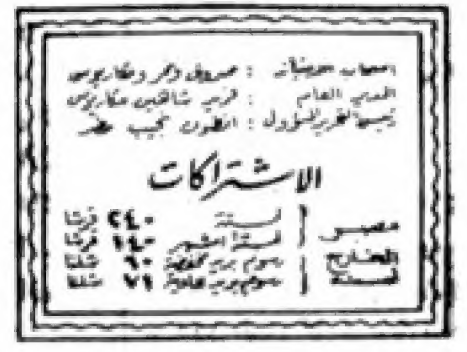 اصحاب امتيازه : صروف ونمر ومكاريوس
المدير العام : فريد شاهين مكاريوس
رئيس التحرير المسؤول : انطون نجيب مطر
الاشتراكات
مصر لسنة ٢٤٠ قرشا
لستة أشهر ١٤٠ قرشا
الخارج رسوم بريد مخفضة ٦٠ شلنا
لسنة رسوم بريد عادية ٧٩ شلنا